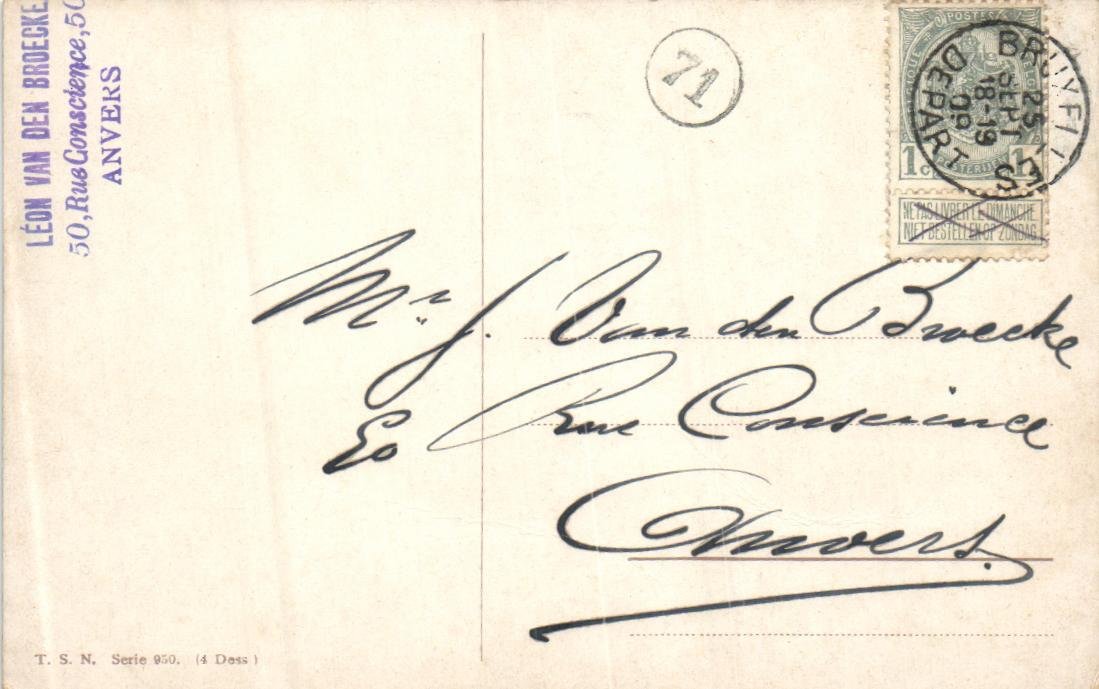 LÉON VAN DEN BROECKE
50, Rue Conscience, 50
ANVERS
71
POSTES
BELGIQUE
1 C. POSTERIJEN 1
BRUXELLES
25
SEPT
18-19
09
DEPART
NE PAS LIVRER LE DIMANCHE
NIET BESTELLEN OP ZONDAG
Mr J. Van den Broecke
50 Rue Conscience
Anvers.
T. S. N. Serie 950. (4 Dess)